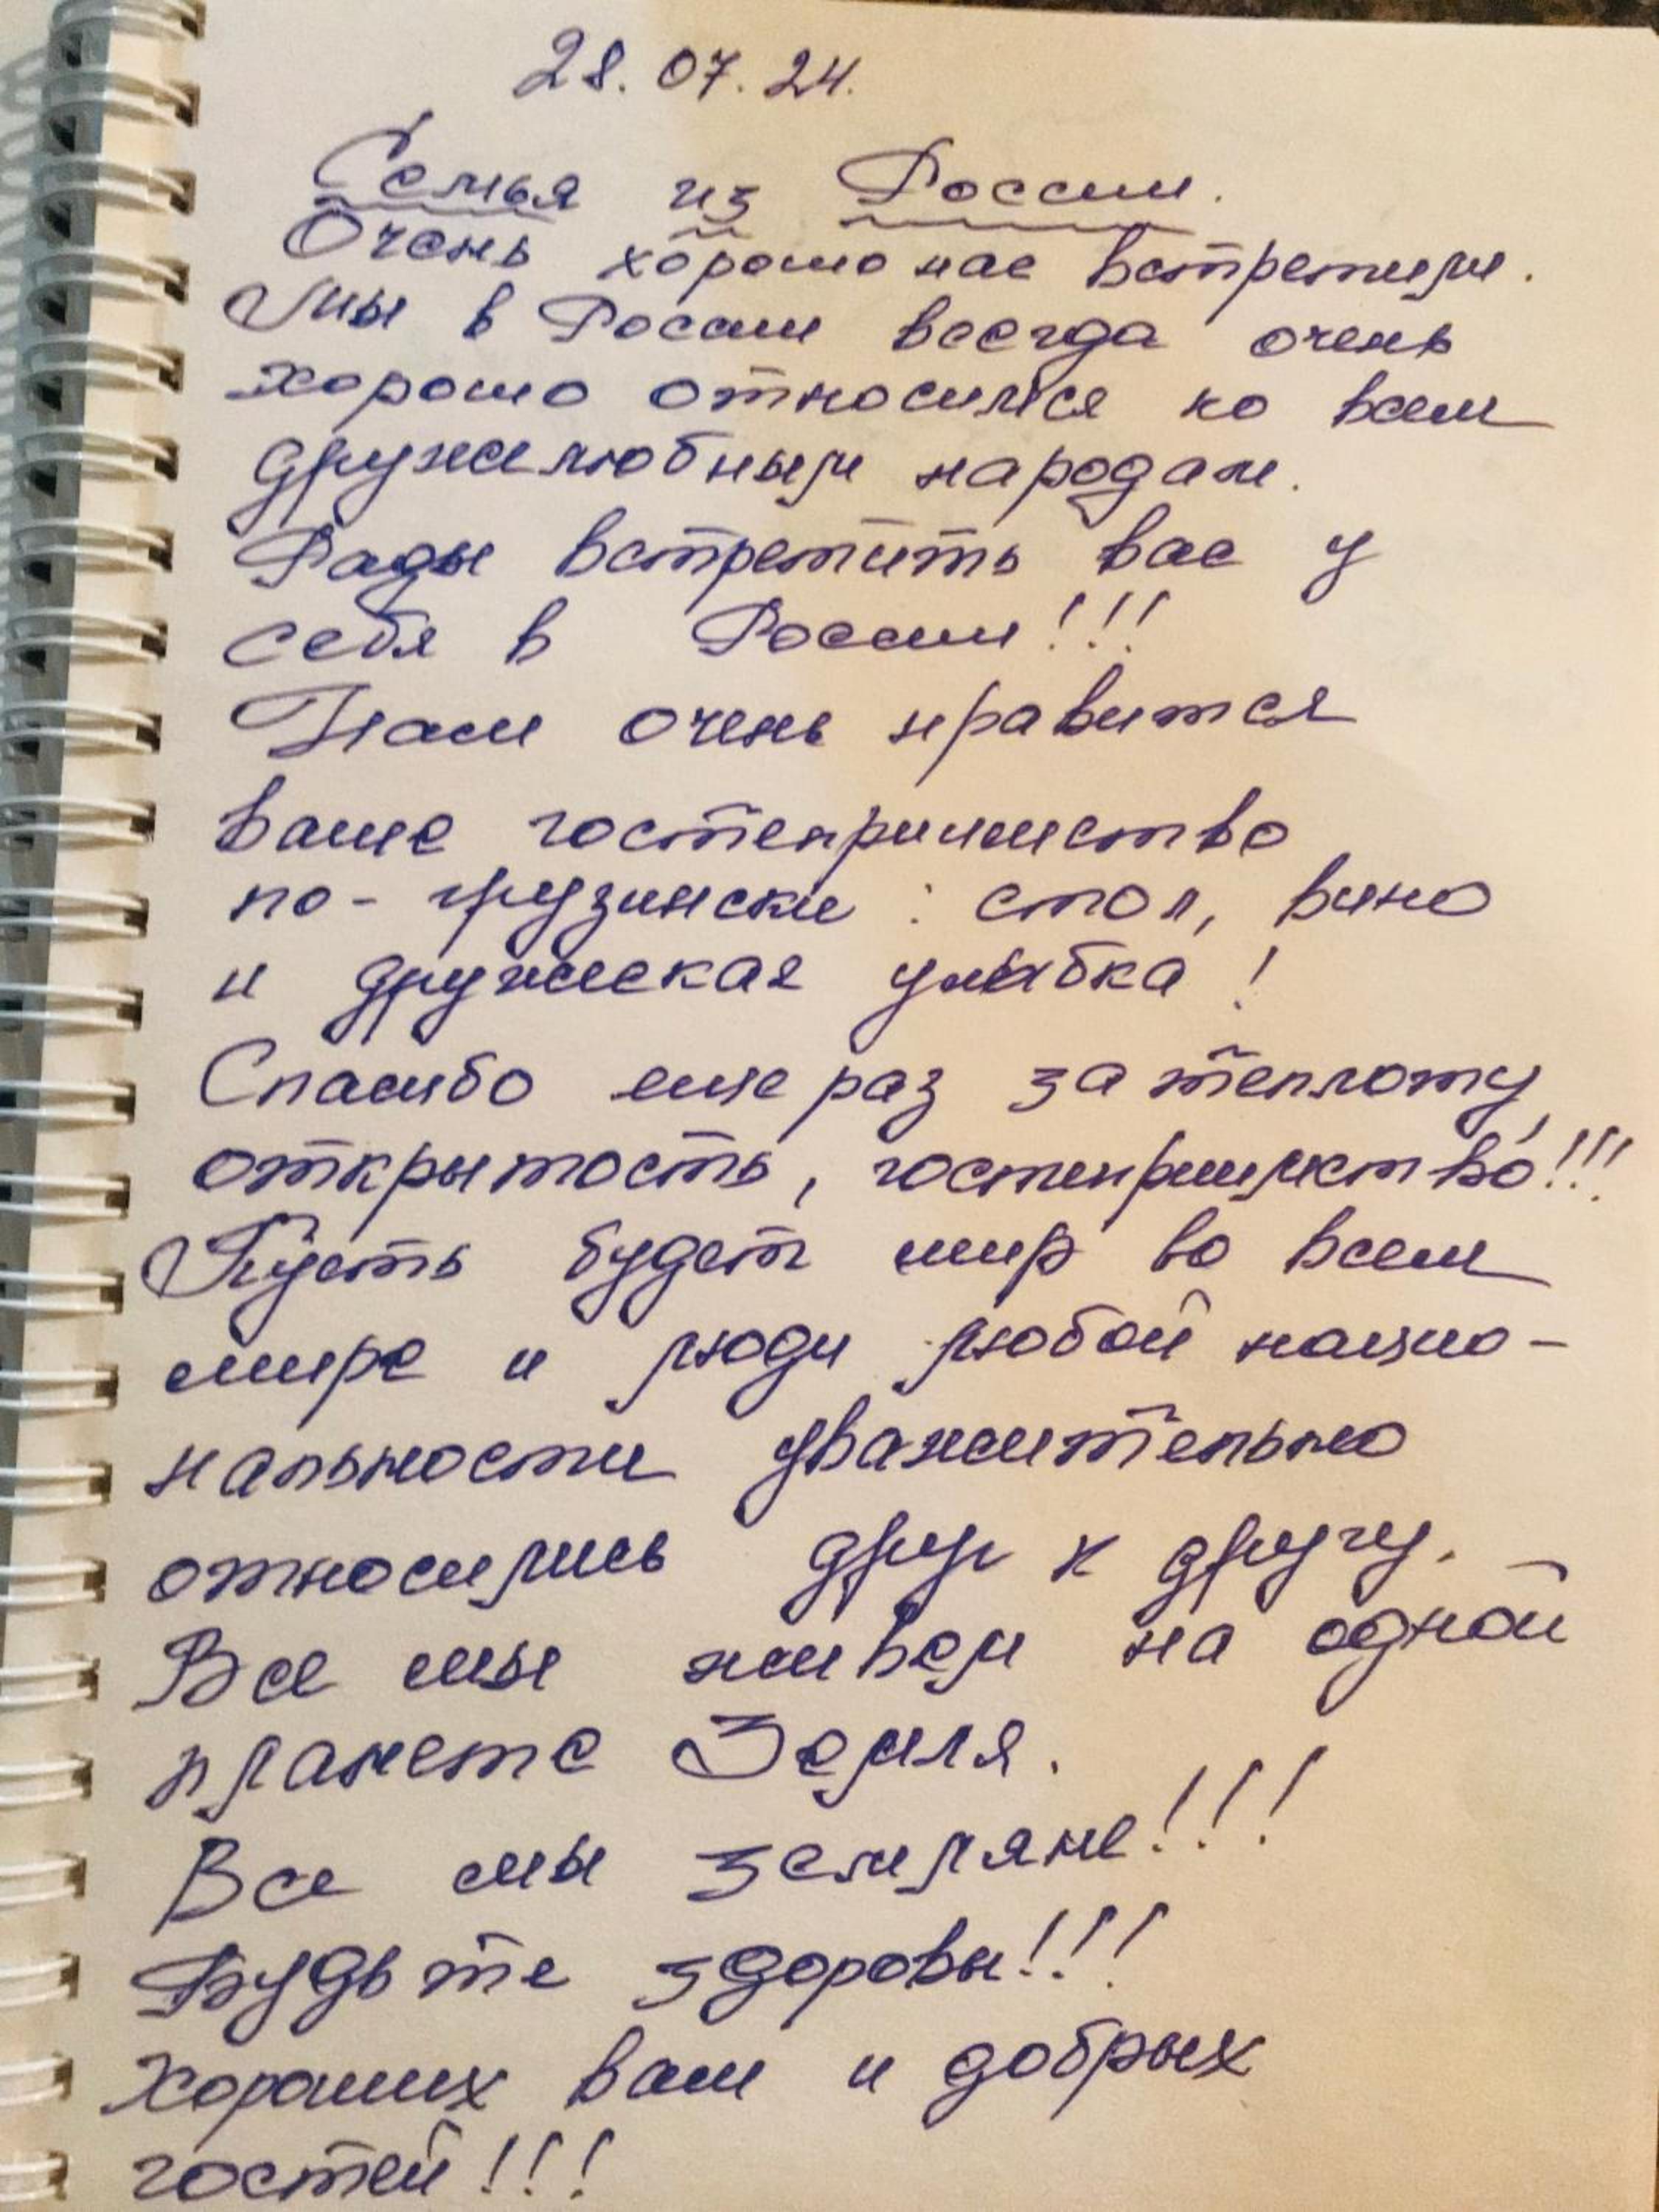 28.07.24.
Семья из России.
Очень хорошо нас встретили.
Мы в России всегда очень
хорошо относимся ко всем
дружелюбным народам.
Рады встретить вас у
себя в России!!!
Нам очень нравится
ваше гостеприимство
по-грузински: стол, вино
и дружеская улыбка!
Спасибо еще раз за теплоту,
открытость, гостеприимство!!!
Пусть будет мир во всем
мире и люди любой нацио-
нальности уважительно
относились друг к другу.
Все мы живем на одной
планете Земля.
Все мы земляне!!!
Будьте здоровы!!!
Хороших вам и добрых
гостей!!!